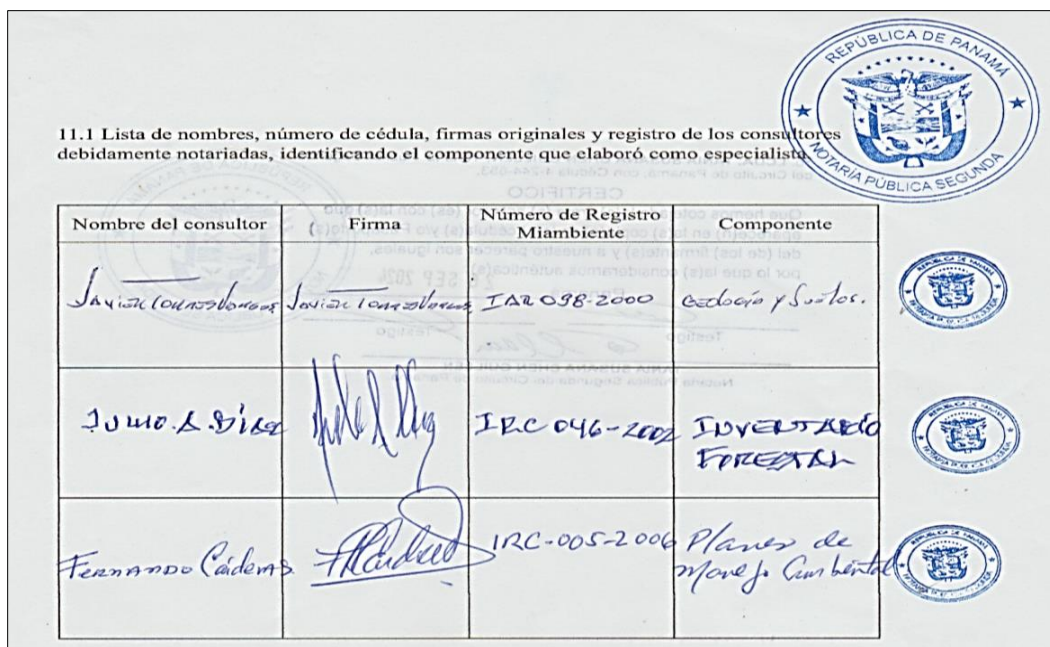 REPÚBLICA DE PANAMÁ
NOTARÍA PÚBLICA SEGUNDA
11.1 Lista de nombres, número de cédula, firmas originales y registro de los consultores
debidamente notariadas, identificando el componente que elaboró como especialista.
CERTIFICO
Nombre del consultor Firma Número de Registro Miambiente Componente
Javier IAR 098-2000 Geología y Suelos.
Julio A. Díaz IRC 046-2002 INVENTARIO
FORESTAL
Fernando Cárdenas IRC-005-2006 Planes de
Manejo Ambiental